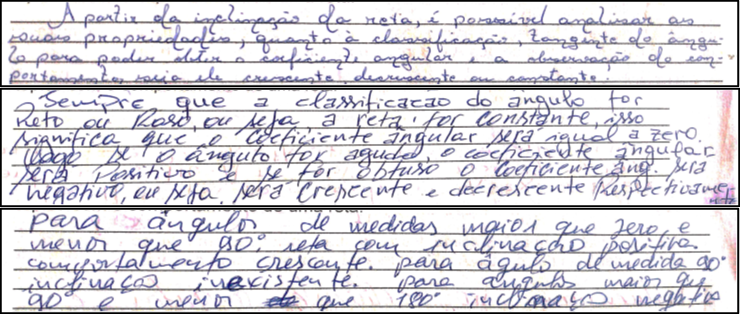 A partir da inclinação da reta, é possível analisar as
suas propriedades, quanto à classificação, tangente do ângu-
lo para poder obter o coeficiente angular e a observação do com-
portamento, seja ele crescente, decrescente ou constante.
Sempre que a classificacao do ângulo for
Reto ou Raso, ou seja a reta for constante, isso
significa que o coeficiente ângular será igual a zero.
Logo se o ângulo for agudo, o coeficiente ângular
será positivo e se for obtuso o coeficiente ang. será
negativo, ou seja, será crescente e decrescente Respectivame
nte
para ângulos de medidas maior que zero, e
menor que 90° reta com inclinação positiva
comportamento crescente. para águlo de medida 90°
inclinação inexistente. para ângulos maior que
90° e menor que 180° inclinação negativa